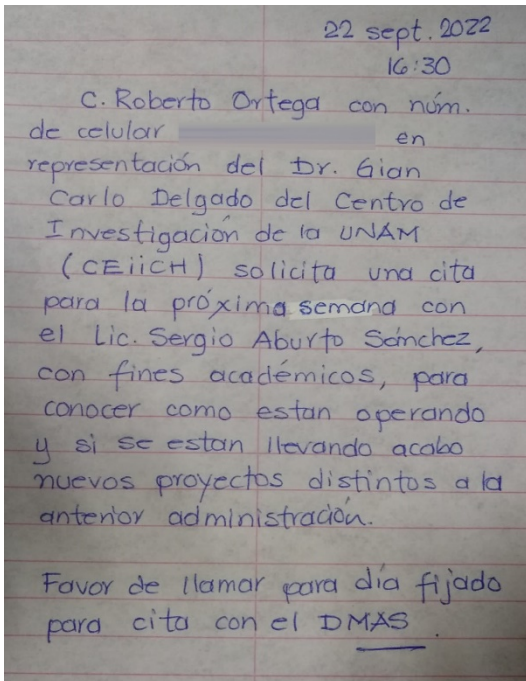 22 sept. 2022
16:30
C. Roberto Ortega con núm.
de celular en
representación del Dr. Gian
Carlo Delgado del Centro de
Investigación de la UNAM
(CEiiCH) solicita una cita
para la próxima semana con
el Lic. Sergio Aburto Sánchez,
con fines académicos, para
conocer como estan operando
y si se estan llevando acabo
nuevos proyectos distintos a la
anterior administración.
Favor de llamar para día fijado
para cita con el DMAS.